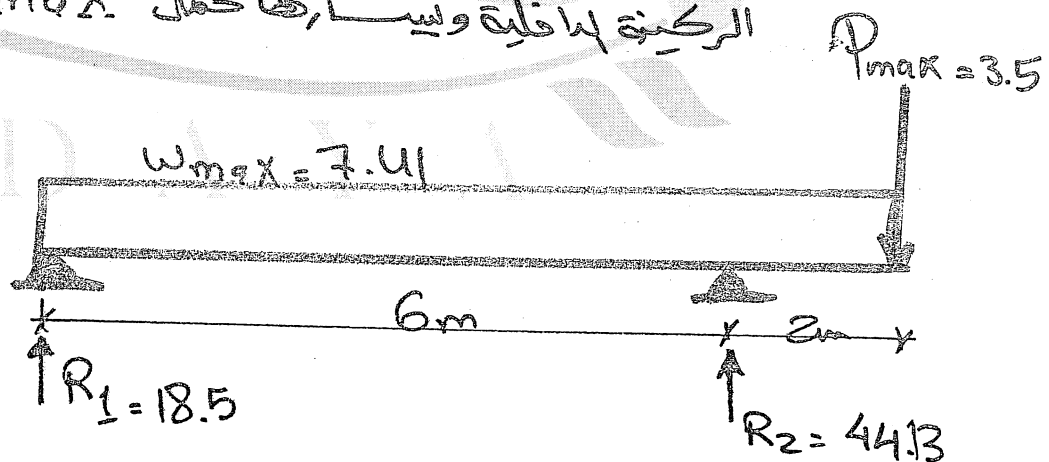 الركيزة الداخلية وليسارها حمل max
Pmax = 3.5
Wmax = 7.41
6m
2m
R1 = 18.5
R2 = 44.13